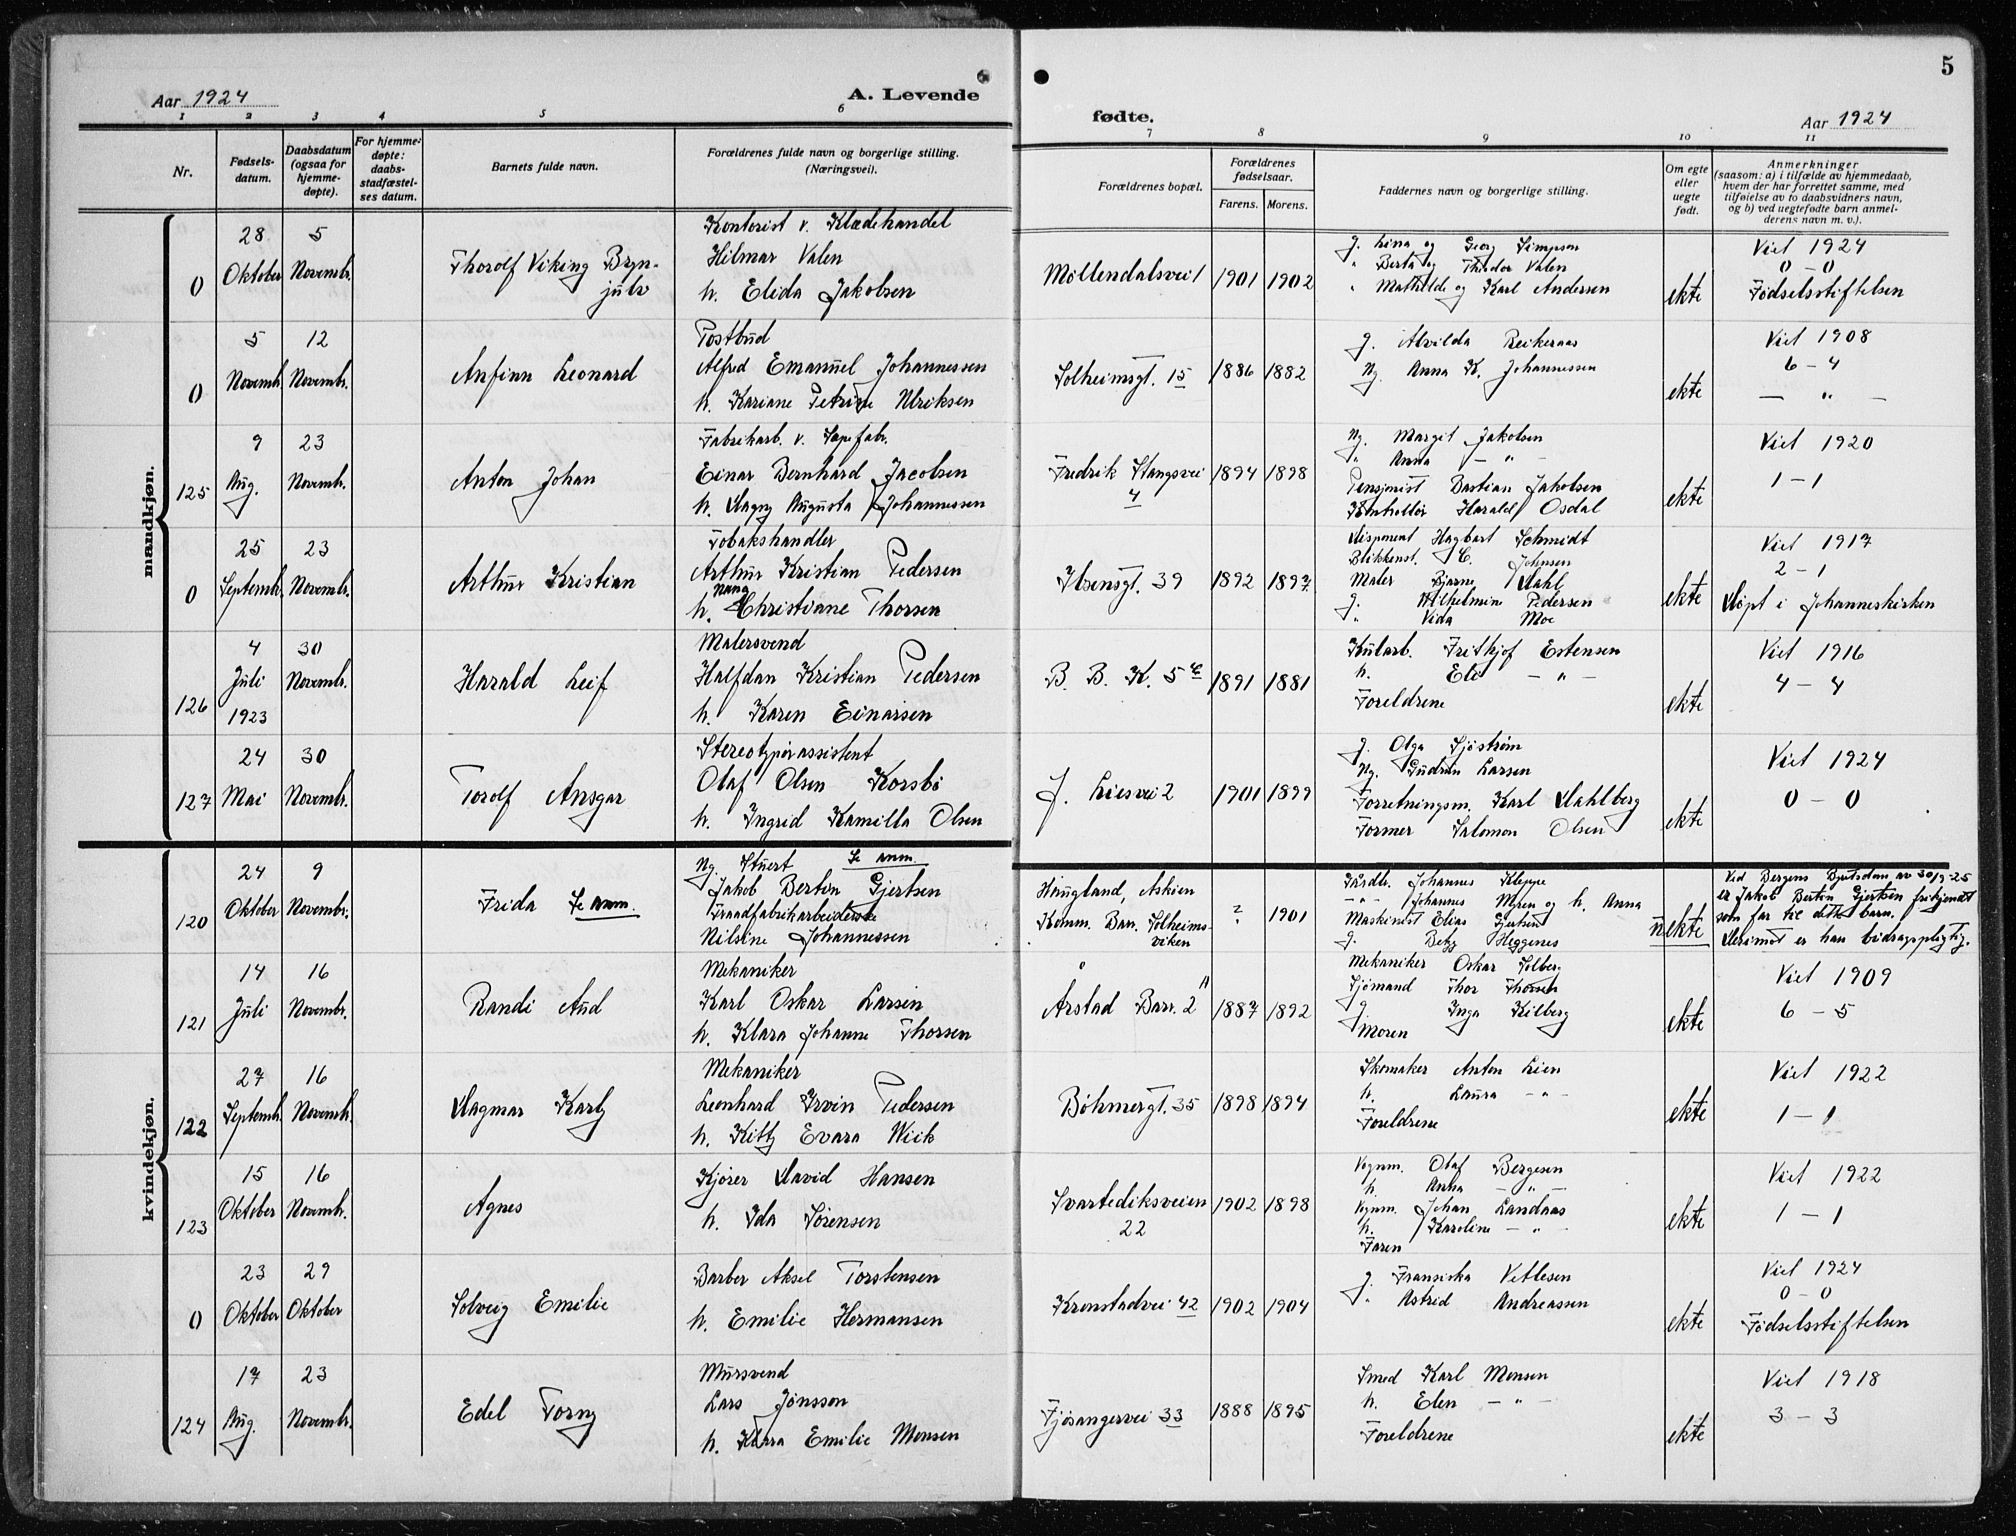 5
Aar 1924
A. Levende
fødte.
Aar 1924
1 2 3 4 5 6 7 8 9 10 11
Nr.
Fødsels-
datum.
Daabsdatum
(ogsaa for
hjemme-
døpte).
For hjemme-
døpte:
daabs-
stadfæstel-
ses datum.
Barnets fulde navn.
Forældrenes fulde navn og borgerlige stilling.
(Næringsveil.
Forældrenes bopæl.
Forældrenes
fødselsaar.
Farens. Morens.
Faddernes navn og borgerlige stilling.
Om egte
eller
uegte
født.
Anmerkninger
(saasom: a) i tilfælde av hjemmedaab,
hvem der har forrettet samme, med
tilføielse av to daabsvidners navn,
og b) ved uegtefødte barn anmel-
derens navn m. v.).
mandkjøn.
0
28
Oktober
5
Novembr.
Thorolf Viking Bryn-
julv
Kontorist v. Klædehandel
Hilmar Valen
h. Elida Jakobsen
Møllendalsvei 1
1901 1902
g. Lina og Georg Simpson
" Berta og Theodor Valen
" Mathilde og Karl Andersen
ekte
Viet 1924
0 – 0
Fødselsstiftelsen
0
5
Novembr.
12
Novembr.
Anfinn Leonard
Postbud
Alfred Emanuel Johannessen
h. Kariane Petrine Ulriksen
Solheimsgt. 15
1886 1882
g. Alvilda Reikeraas
Ng. Anna K. Johannessen
ekte
Viet 1908
6 – 4
— " —
125
9
Aug.
23
Novembr.
Anton Johan
Fabrikarb. v. Sæpefabr.
Einar Bernhard Jacobsen
h. Dagny Augusta Johannessen
Fredrik Stangsvei
4
1894 1898
Ng. Margit Jakobsen
" Anna – " –
Pensjonist Bastian Jakobsen
Harald Osdal
ekte
Viet 1920
1 – 1
0
25
Septembr.
23
Novembr.
Arthur Kristian
Tobakshandler
Arthur Kristian Pedersen
Nana
h. Christiane Thorsen
Ibsensgt. 39
1892 1897
Disponent Hagbart Schmidt
Blikkensl. C. Johnsen
Maler Bjarne Dahl
g. Wilhelmine Pedersen
" Vida Moe
ekte
Viet 1917
2 – 1
Døpt i Johanneskirken
126
4
Juli
1923
30
Novembr.
Harald Leif
Malersvend
Halfdan Kristian Pedersen
h. Karen Einarsen
B. B. K. 5 c
1891 1881
Kularb. Frithjof Estensen
h. Eli – " –
Foreldrene
ekte
Viet 1916
4 – 4
127
24
Mai
30
Novembr.
Torolf Ansgar
Stereotypørassistent
Olaf Olsen Korsbø
h. Ingrid Kamilla Olsen
J. Liesvei 2
1901 1899
g. Olga Sjøstrøm
Ng. Gudrun Larsen
Forretningsm. Karl Dahlberg
Former Salomon Olsen
ekte
Viet 1924
0 – 0
kvindekjøn.
120
24
Oktober
9
Novembr.
Frida Se anm.
Ng. Stuert Se anm.
Jakob Bertin Gjertsen
Traadfabrikarbeiderske
Nilsine Johannessen
Haugland, Askøen
Komm. Bar. Solheims-
viken
?
" 1901
Gårdbr. Johannes Kleppe
– " – Johannes Myren og h. Anna
Maskinist Elias Gjertsen
g. Betzy Heggenes
uekte
Ved Bergens Byretsdom av 30/9-25
er Jakob Bertin Gjertsen frikjendt
som far til dette barn.
Derimot er han bidragspligtig.
121
14
Juli
16
Novembr.
Randi Aud
Mekaniker
Karl Oskar Larsen
h. Klara Johanne Thorsen
Årstad Barr. 2 A
1887 1892
Mekaniker Oskar Solberg
Sjømand Thor Thorsen
g. Inga Kilberg
Moren
ekte
Viet 1909
6 – 5
122
27
Septembr.
16
Novembr.
Dagmar Karly
Mekaniker
Leonhard Irvin Pedersen
h. Kitty Evara Wiik
Bøhmergt. 35
1898 1894
Skomaker Anton Lien
h. Laura – " –
Foreldrene
ekte
Viet 1922
1 – 1
123
15
Oktober
16
Novembr.
Agnes
Kjører David Hansen
h. Ida Sørensen
Svartediksveien
22
1902 1898
Vognm. Olaf Bergesen
h. Anna – " –
Vognm. Johan Landaas
h. Karoline – " –
Faren
ekte
Viet 1922
1 – 1
0
23
Oktober
29
Oktober
Solveig Emilie
Barber Aksel Torstensen
h. Emilie Hermansen
Kronstadvei 42
1902 1904
g. Fransiska Vetlesen
" Astrid Andreassen
ekte
Viet 1924
0 – 0
Fødselsstiftelsen
124
17
Aug.
23
Novembr.
Edel Torny
Mursvend
Lars Jonsson
h. Klara Emilie Monsen
Fjøsangervei 33
1888 1895
Smed Karl Monsen
h. Elen – " –
Foreldrene
ekte
Viet 1918
3 – 3